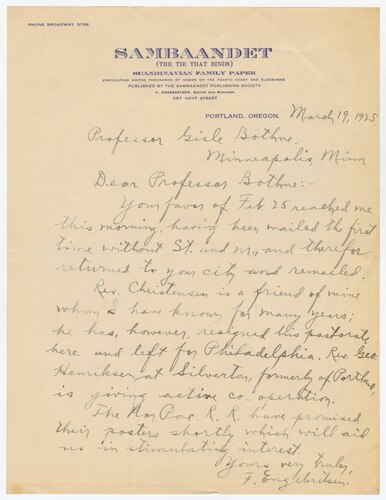 PHONE BROADWAY 5768
SAMBAANDET
(THE TIE THAT BINDS)
SCANDINAVIAN FAMILY PAPER
CIRCULATING AMONG THOUSANDS OF HOMES ON THE PACIFIC COAST AND ELSEWHERE
PUBLISHED BY THE SAMBAANDET PUBLISHING SOCIETY
F. ENGEBRETSEN, EDITOR AND MANAGER
567 HOYT STREET
PORTLAND, OREGON, March 19, 1925
Professor Gisle Bothne,
Minneapolis, Minn.
Dear Professor Bothne:-
Your favor of Feb 25 reached me
this morning, having been mailed the first
time without St. and nr., and therefor
returned to your city and remailed.
Rev. Christensen is a friend of mine
whom I have known for many years;
he has, however, resigned his pastorate
here and left for Philadelphia. Rev. Geo.
Henriksen, at Silverton, formerly of Portland,
is giving active co-operation.
The Nor Pac. R. R. have promised
their posters shortly which will aid
us in stimulating interest.
Yours very truly,
F. Engebretsen.